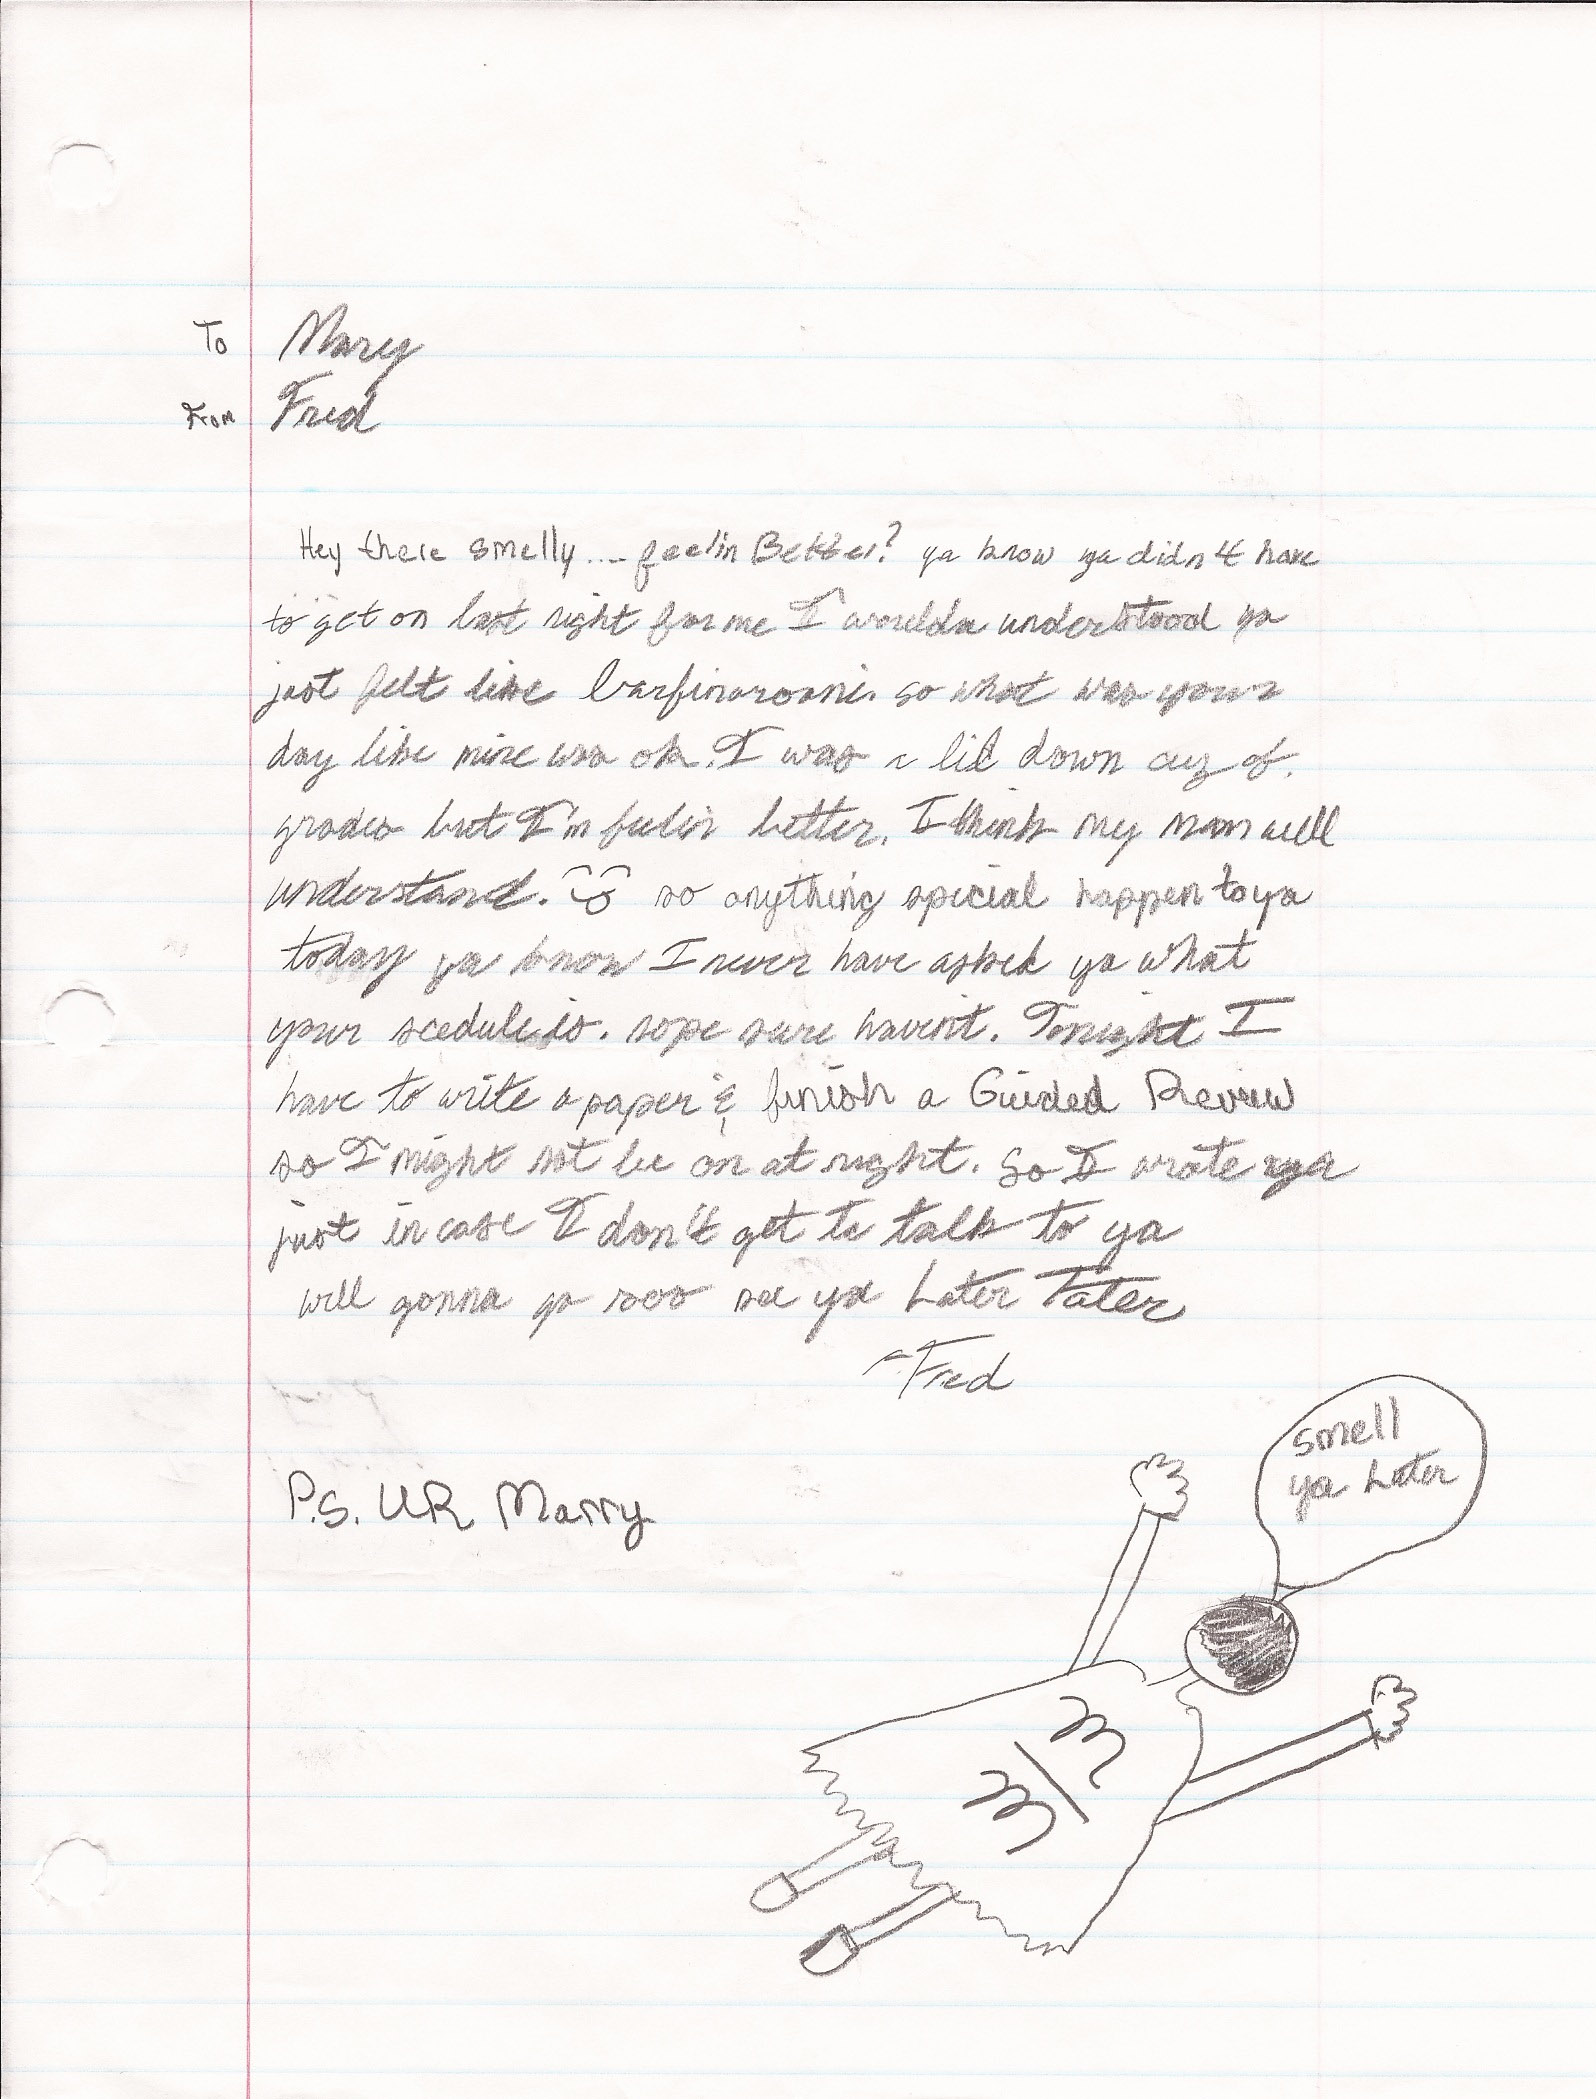 To Mary
From Fred
Hey there smelly.... feelin Better? ya know ya didn't have
to get on last night for me I woulda understood ya
just felt like barfinaroani. so what was your
day like mine was ok. I was a lil down cuz of.
grades but I'm feelin better. I think my mom will
understand. so anything special happen to ya
today ya know I never have asked ya what
your scedule is. nope sure havent. Tonight I
have to write a paper & finish a Guided Review
so I might not be on at night. So I wrote ya
just in case I don't get to talk to ya
well gonna go now see ya Later Tater
~Fred
smell
ya Later
P.S. UR Marry